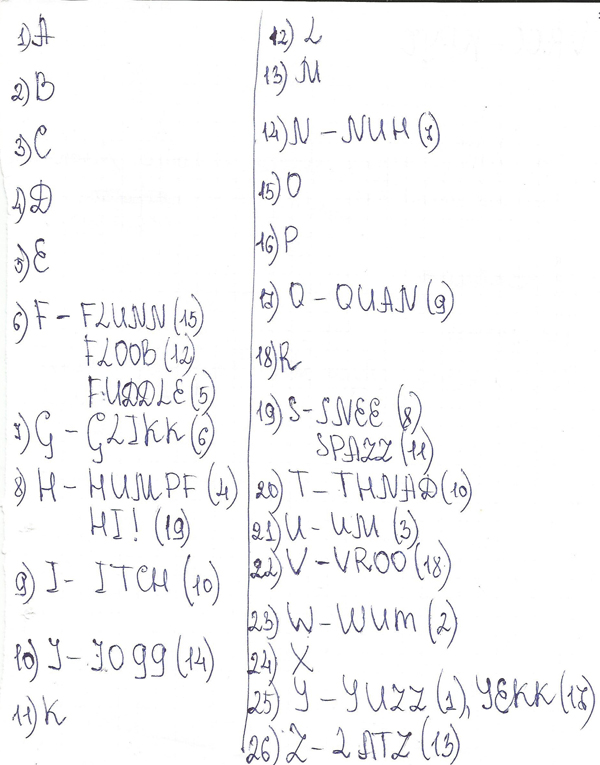 1) A
2) B
3) C
4) D
5) E
6) F - FLUNN (15)
FLOOB (12)
FUDDLE (5)
7) G - GLIKK (6)
8) H - HUMPF (4)
HI! (19)
9) I - ITCH (10)
10) J - JOGG (14)
11) K
12) L
13) M
14) N - NUH (7)
15) O
16) P
17) Q - QUAN (9)
18) R
19) S - SNEE (8)
SPAZZ (11)
20) T - THNAD (10)
21) U - UM (3)
22) V - VROO (18)
23) W - WUM (2)
24) X
25) Y - YUZZ (1), YEKK (17)
26) Z - ZATZ (13)